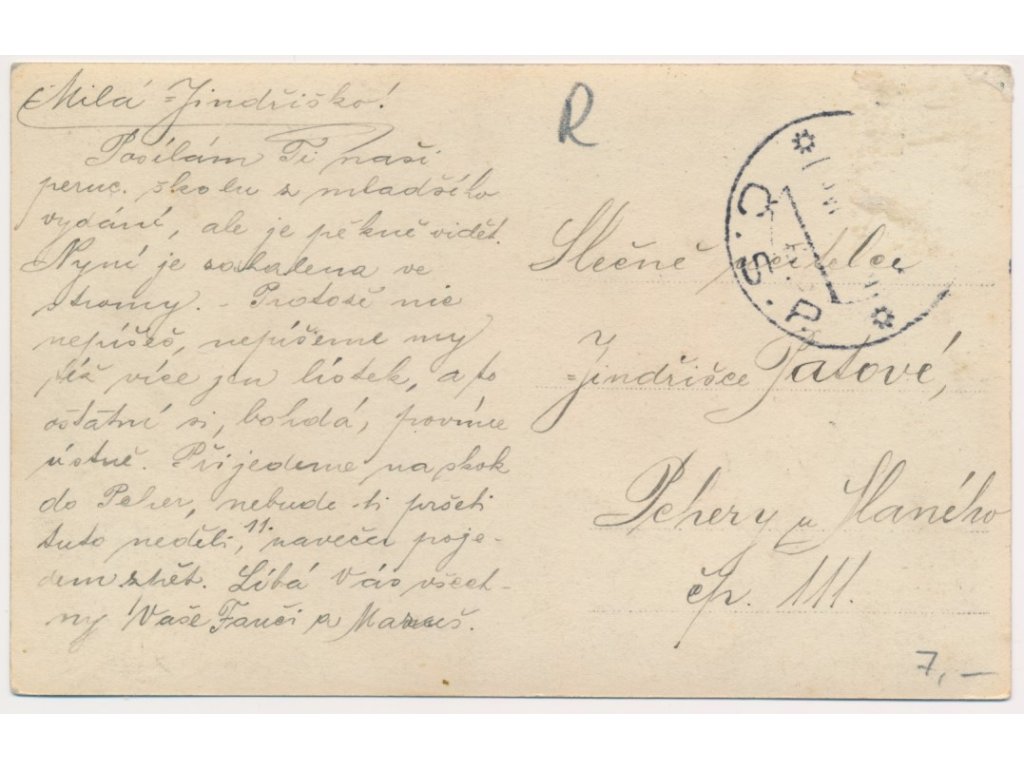 Milá Jindřiško!
Posílám Ti naši
peruc. školu z mladšího
vydání, ale je pěkně vidět.
Nyní je zahalena ve
stromy. - Protože nic
nepíšeš, nepíšeme my
též více jen lístek, a to
ostatní si, bohdá, povíme
ústně. Přijedeme na skok
do Pcher, nebude-li pršeti
tuto neděli, 11. navečer poje-
dem zpět. Líbá Vás všech-
ny Vaše Fanči a
R
Slečně
Jindřišce Patové,
Pchery u Slaného
čp. 111.
Č.S.P.
7,-